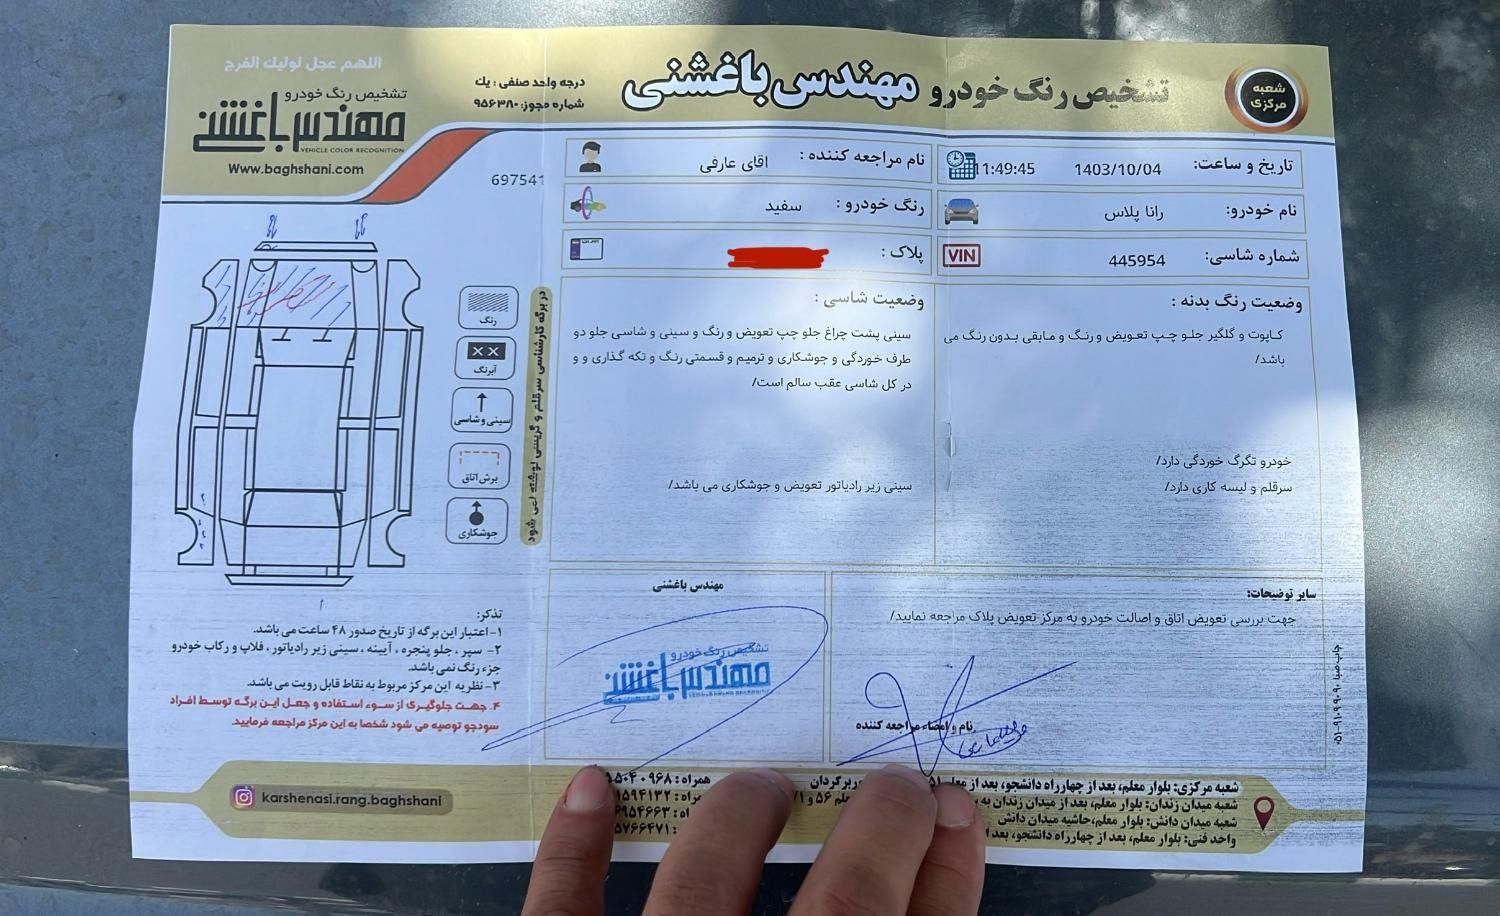 اللهم عجل لولیك الفرج
تشخیص رنگ خودرو
مهندس باغشنی
VEHICLE COLOR RECOGNITION
Www.baghshani.com
درجه واحد صنفی : یك
شماره مجوز: ۹۵۶۳۸۰
تشخیص رنگ خودرو مهندس باغشنی
شعبه
مرکزی
697541
تاریخ و ساعت: 1403/10/04 11:49:45
نام مراجعه کننده : اقای عارفی
نام خودرو: رانا پلاس
رنگ خودرو : سفید
شماره شاسی: 445954
VIN
پلاک :
وضعیت رنگ بدنه :
کاپوت و گلگیر جلو چپ تعویض و رنگ و مابقی بدون رنگ می
باشد/
خودرو تگرگ خوردگی دارد/
سرقلم و لیسه کاری دارد/
وضعیت شاسی :
سینی پشت چراغ جلو چپ تعویض و رنگ و سینی و شاسی جلو دو
طرف خوردگی و جوشکاری و ترمیم و قسمتی رنگ و تکه گذاری و و
در کل شاسی عقب سالم است/
سینی زیر رادیاتور تعویض و جوشکاری می باشد/
رنگ
آبرنگ
سینی و شاسی
برش اتاق
جوشکاری
در برگه کارشناسی سرقلم و گریسی نوشته نمی شود
سایر توضیحات:
جهت بررسی تعویض اتاق و اصالت خودرو به مرکز تعویض پلاک مراجعه نمایید/
نام و امضاء مراجعه کننده
مهندس باغشنی
تشخیص رنگ خودرو
مهندس باغشنی
تذکر:
۱- اعتبار این برگه از تاریخ صدور ۴۸ ساعت می باشد.
۲- سپر ، جلو پنجره ، آیینه ، سینی زیر رادیاتور ، فلاپ و رکاب خودرو
جزء رنگ نمی باشد.
۳- نظریه این مرکز مربوط به نقاط قابل رویت می باشد.
۴. جهت جلوگیری از سوء استفاده و جعل این برگه توسط افراد
سودجو توصیه می شود شخصا به این مرکز مراجعه فرمایید.
karshenasi.rang.baghshani
شعبه مرکزی: بلوار معلم، بعد از چهارراه دانشجو، بعد از معلم ۵۱
شعبه میدان زندان: بلوار معلم، بعد از میدان زندان به
شعبه میدان دانش: بلوار معلم، حاشیه میدان دانش
واحد فنی: بلوار معلم، بعد از چهارراه دانشجو، بعد از
دوربرگردان
همراه : ۵۵۰۴۰۹۶۸